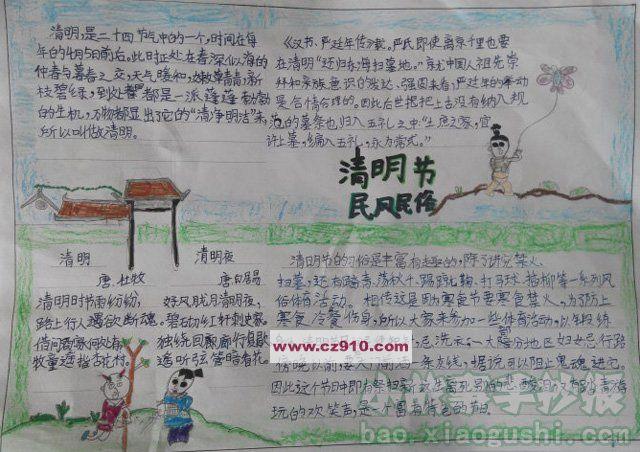 清明,是二十四节气中的一个,时间在每
年的4月5日前后。此时正处在春深似海的
仲春与暮春之交,天气暖和,嫩草青青,新
枝碧绿,到处都是一派蓬蓬勃勃
的生机,万物都显出它的“清净明洁”来,
所以叫做清明。
《汉书、严延年传》载。严氏即使离京千里也要
在清明“还归东海扫墓地。”就中国人祖先崇
拜和亲族意识的发达、强固来看,严延年的举动
是合情合理的。因此后世把上古没有纳入规
范的墓祭也归入五礼之中:“士庶之家,宜
许上墓,编入五礼,永为常式。”
清明节
民风民俗
清明
唐.杜牧
清明时节雨纷纷,
路上行人遇欲断魂。
借问酒家何处有
牧童遥指杏花村。
清明夜
唐白居易
好风胧月清明夜,
碧石切红轩刺史家。
独绕回廊行复歇
遥听弦管暗看花
清明节的习俗是丰富有趣的,除了讲究禁火、
扫墓,还有踏青、荡秋千、蹴鞠、打马球、插柳等一系列风
俗体育活动。相传这是因寒食节要寒食禁火,为了防止
寒食冷餐伤身,所以大家来参加一些体育活动,以锻炼
大部分地区妇女忌行路
傍晚以前要大门前洒一条灰线,据说可以阻止鬼魂进宅。
因此这个节日中即有祭扫新坟生离死别的悲酸泪,又有踏青游
玩的欢笑声,是一个富有特色的节日
www.cz910.com
小故事手抄报
bao.xiaogushi.com